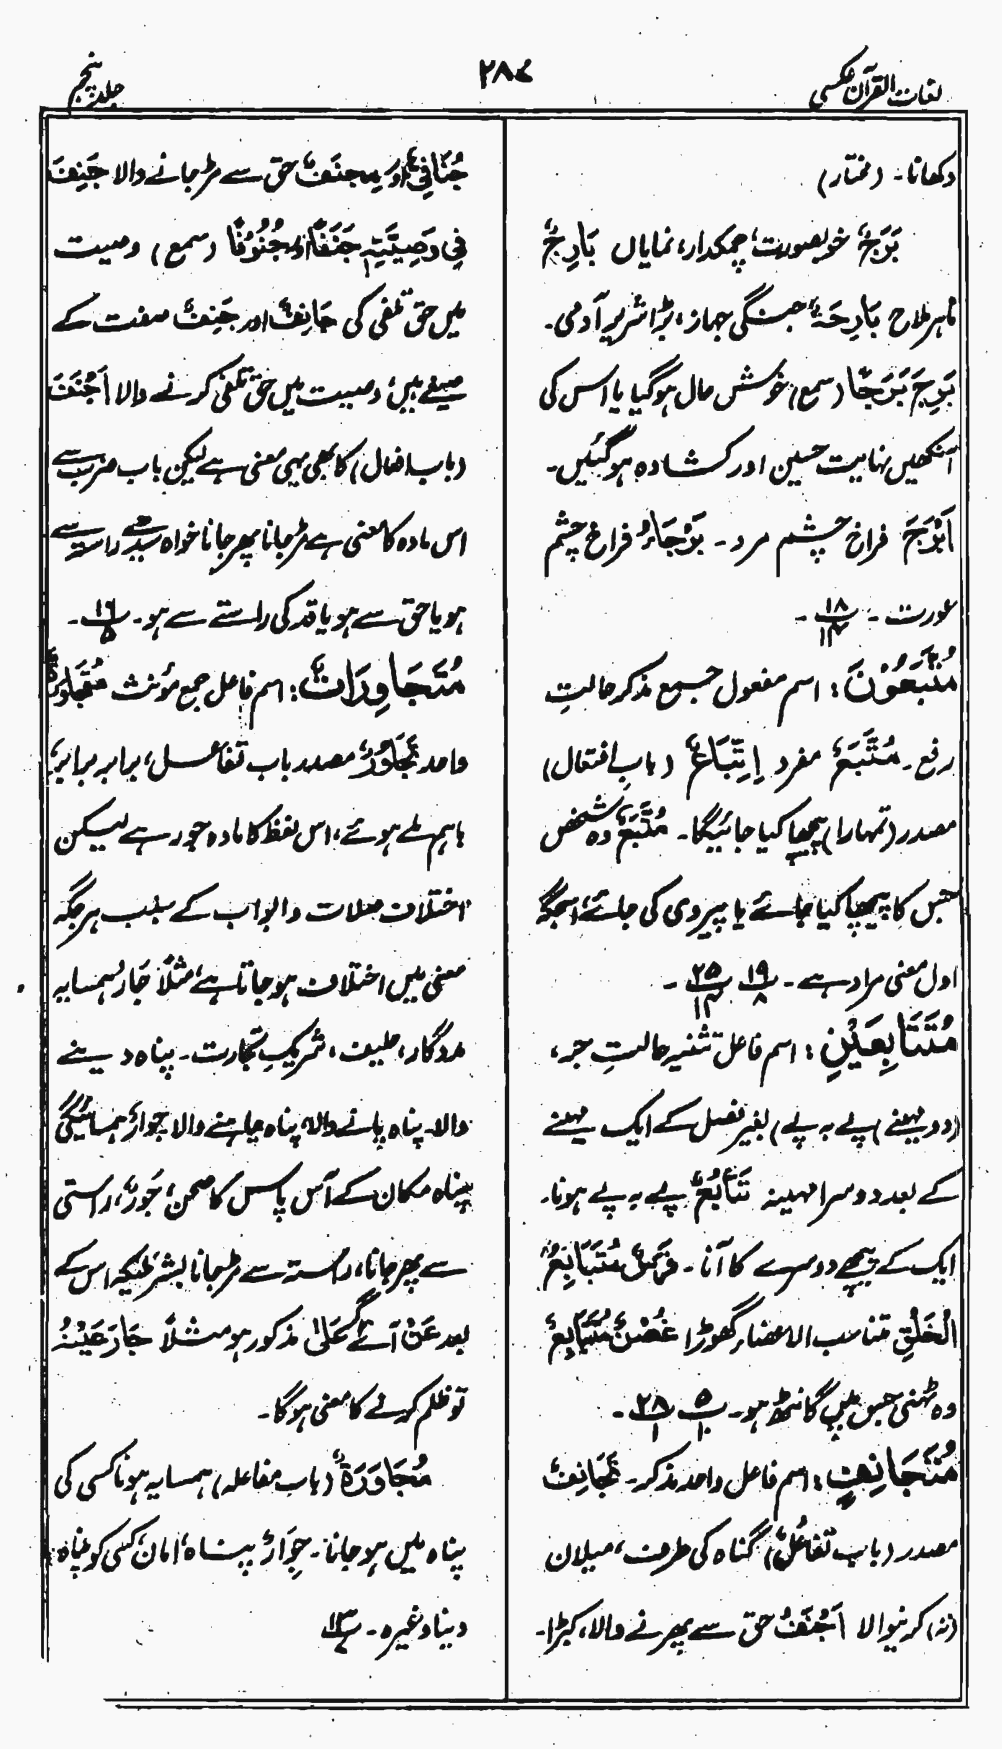 لغات القرآن عکسی
۲۸۷
جلد پنجم
دکھانا۔ (مختار)
بَرَجٌ خوبصورت، چمکدار، نمایاں بَارِجٌ
ماہر ملاح بَارِجَۃٌ جنگی جہاز، بڑا شریر آدمی۔
بَرِجَ بَرَجًا (سمع) خوش حال ہوگیا یا اس کی
آنکھیں نہایت حسین اور کشادہ ہوگئیں۔
اَبْرَجَ فراخ چشم مرد۔ بَرْجَاءُ فراخ چشم
عورت۔ پ۱۸/۱۴۔
مُتَّبَعُوْنَ: اسم مفعول جمع مذکر حالتِ
رفع۔ مُتَّبَعٌ مفرد اِتِّبَاعٌ (بابِ افتعال)
مصدر (تمہارا) پیچھا کیا جائیگا۔ مُتَّبَعٌ وہ شخص
جس کا پیچھا کیا جائے یا پیروی کی جائے، اسجگہ
اول معنی مراد ہے۔ پ۱۹/۸ پ۲۵/۱۴۔
مُتَتَابِعَیْنِ: اسم فاعل تثنیہ حالتِ جر،
(دو مہینے) پے بہ پے) بغیر فصل کے ایک مہینے
کے بعد دوسرا مہینہ تَتَابُعٌ پے بہ پے ہونا۔
ایک کے پیچھے دوسرے کا آنا۔ فَرَسٌ مُتَتَابِعُ
الْخَلْقِ متناسب الاعضاء گھوڑا غُصْنٌ مُتَتَابِعٌ
وہ ٹہنی جس میں گانٹھ ہو۔ پ۵/۱۰ پ۲۸/۱۔
مُتَجَانِفٍ: اسم فاعل واحد مذکر۔ تَجَانُفٌ
مصدر (باب تفاعُل) گناہ کی طرف، میلان
(نہ) کرنیوالا اَجْنَفُ حق سے پھرنے والا، کبڑا۔
جُنَافِیٌّ اور مِجْنَفٌ حق سے مڑ جانے والا جَنِفَ
فِی وَصِیَّتِہٖ جَنَفًا اور جُنُوْفًا (سمع) وصیت
میں حق تلفی کی جَانِفٌ اور جَنِفٌ صفت کے
صیغے ہیں، وصیت میں حق تلفی کرنے والا اَجْنَفَ
(باب افعال) کا بھی یہی معنی ہے لیکن باب ضرب سے
اس مادہ کا معنی ہے مڑ جانا پھر جانا خواہ سیدھے راستہ سے
ہو یا حق سے ہو یا قد کی راستے سے ہو۔ پ۱۶/۵۔
مُتَجَاوِرَاتٌ: اسم فاعل جمع مؤنث مُتَجَاوِرَۃٌ
واحد تَجَاوُرٌ مصدر باب تفاعل، برابر برابر،
باہم ملے ہوئے، اس لفظ کا مادہ جور ہے لیکن
اختلاف صلات و ابواب کے سبب ہر جگہ
معنی میں اختلاف ہو جاتا ہے، مثلًا جَارٌ ہمسایہ
مددگار، حلیف، شریکِ تجارت۔ پناہ دینے
والا۔ پناہ پانے والا، پناہ چاہنے والا جِوَارٌ ہمسائیگی
پناہ مکان کے آس پاس کا صحن، جَوْرٌ، راستی
سے پھر جانا، راستہ سے مڑ جانا بشرطیکہ اس کے
بعد عَنْ آئے گر عَلٰی مذکور ہو مثلًا جَارَ عَیْنُہٗ
تو ظلم کرنے کا معنی ہوگا۔
مُجَاوَرَۃٌ (باب مفاعلہ) ہمسایہ ہونا کسی کی
پناہ میں ہو جانا۔ جِوَارٌ پناہ، امان، کسی کو پناہ
دینا وغیرہ۔ پ۱۳/۷